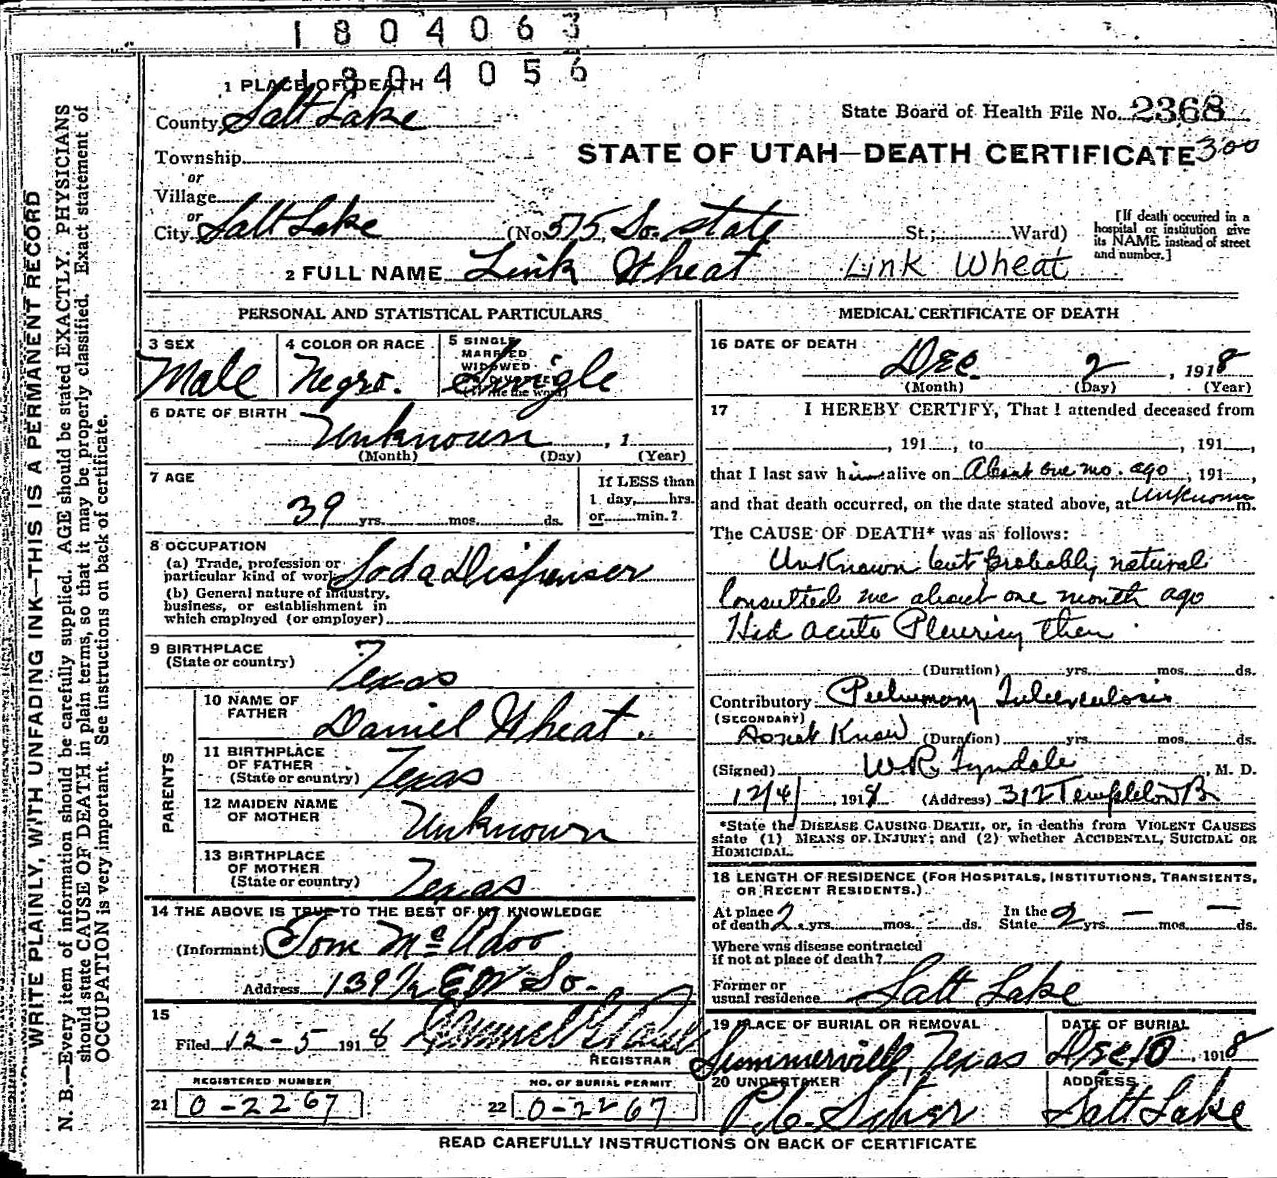 1804063
1804056
1 PLACE OF DEATH
County Salt Lake
State Board of Health File No. 2368
STATE OF UTAH—DEATH CERTIFICATE 300
Township
or
Village
or
City Salt Lake (No. 575 So. State St.; Ward)
[If death occurred in a
hospital or institution give
its NAME instead of street
and number.]
2 FULL NAME Link Wheat Link Wheat
PERSONAL AND STATISTICAL PARTICULARS
3 SEX
Male
4 COLOR OR RACE
Negro.
5 SINGLE
MARRIED
WIDOWED
Single
6 DATE OF BIRTH
Unknown , 1
(Month) (Day) (Year)
7 AGE
39 yrs. mos. ds.
If LESS than
1 day, hrs.
or min.?
8 OCCUPATION
(a) Trade, profession or
particular kind of work Soda Dispenser
(b) General nature of industry,
business, or establishment in
which employed (or employer)
9 BIRTHPLACE
(State or country) Texas
PARENTS
10 NAME OF
FATHER Daniel Wheat.
11 BIRTHPLACE
OF FATHER
(State or country) Texas
12 MAIDEN NAME
OF MOTHER Unknown
13 BIRTHPLACE
OF MOTHER
(State or country) Texas
14 THE ABOVE IS TRUE TO THE BEST OF MY KNOWLEDGE
(Informant) Tom McAdoo
Address 139 1/2 E 2nd So.
15
Filed 12-5 1918
REGISTRAR
REGISTERED NUMBER
21 0-2267
NO. OF BURIAL PERMIT
22 0-2267
MEDICAL CERTIFICATE OF DEATH
16 DATE OF DEATH
Dec. 2 , 1918
(Month) (Day) (Year)
17 I HEREBY CERTIFY, That I attended deceased from
, 191 , to , 191 ,
that I last saw him alive on About one mo. ago , 191 ,
and that death occurred, on the date stated above, at Unknown m.
The CAUSE OF DEATH* was as follows:
Unknown but Probably natural
Consulted me about one month ago
Had acute Pleurisy then
(Duration) yrs. mos. ds.
Contributory Pulmonary Tuberculosis
(SECONDARY)
Don't Know (Duration) yrs. mos. ds.
(Signed) W.R. Tyndale , M. D.
12/4/ , 1918 (Address) 312 Templeton B
*State the DISEASE CAUSING DEATH, or, in deaths from VIOLENT CAUSES
state (1) MEANS OF INJURY; and (2) whether ACCIDENTAL, SUICIDAL OR
HOMICIDAL.
18 LENGTH OF RESIDENCE (FOR HOSPITALS, INSTITUTIONS, TRANSIENTS,
OR RECENT RESIDENTS.)
At place
of death 2 yrs. mos. ds.
In the
State 2 yrs. — mos. — ds.
Where was disease contracted
if not at place of death?
Former or
usual residence Salt Lake
19 PLACE OF BURIAL OR REMOVAL
Summerville, Texas
DATE OF BURIAL
Dec 10 , 1918
20 UNDERTAKER
ADDRESS
Salt Lake
READ CAREFULLY INSTRUCTIONS ON BACK OF CERTIFICATE
WRITE PLAINLY, WITH UNFADING INK—THIS IS A PERMANENT RECORD
N. B.—Every item of information should be carefully supplied. AGE should be stated EXACTLY. PHYSICIANS
should state CAUSE OF DEATH in plain terms, so that it may be properly classified. Exact statement of
OCCUPATION is very important. See instructions on back of certificate.